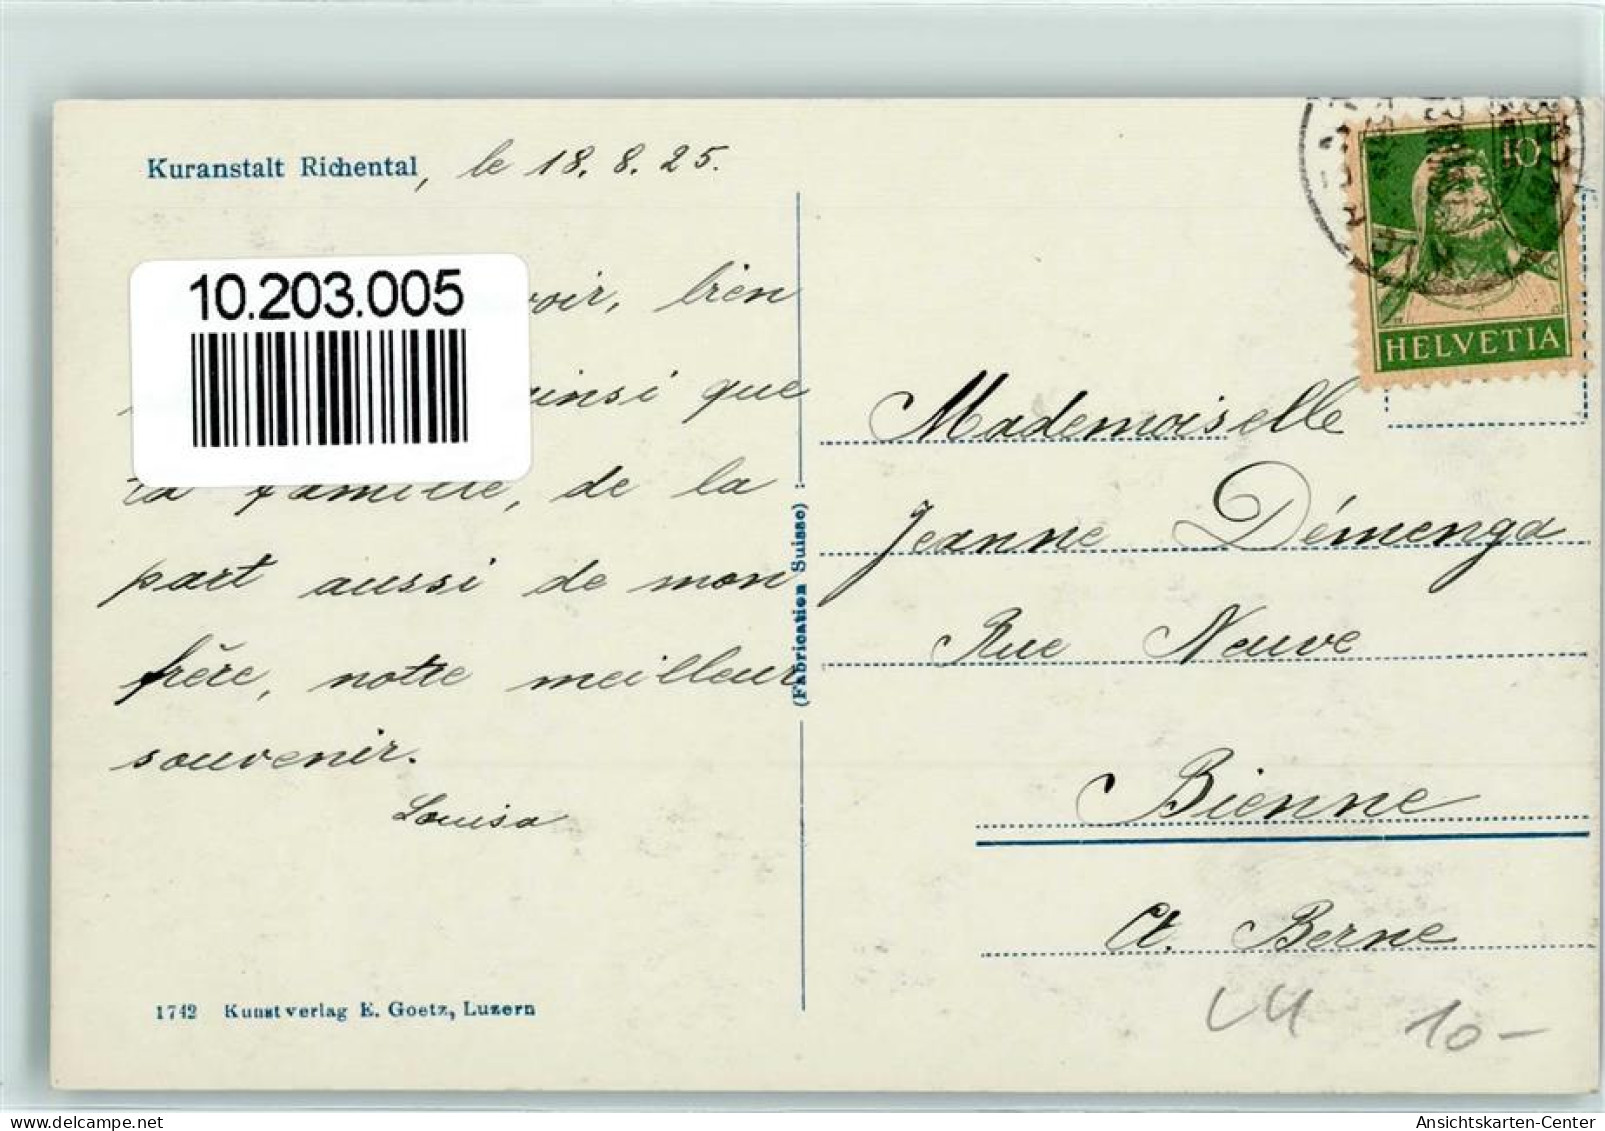 Kuranstalt Richental, le 18.8.25.
10.203.005
voir, bien
ainsi que
ta famille, de la
part aussi de mon
frère, notre meilleur
souvenir.
Louisa
1742 Kunstverlag E. Goetz, Luzern
(Fabrication Suisse)
10
HELVETIA
Mademoiselle
Jeanne Démenga
Rue Neuve
Bienne
Ct. Berne
10-
Ansichtskarten-Center